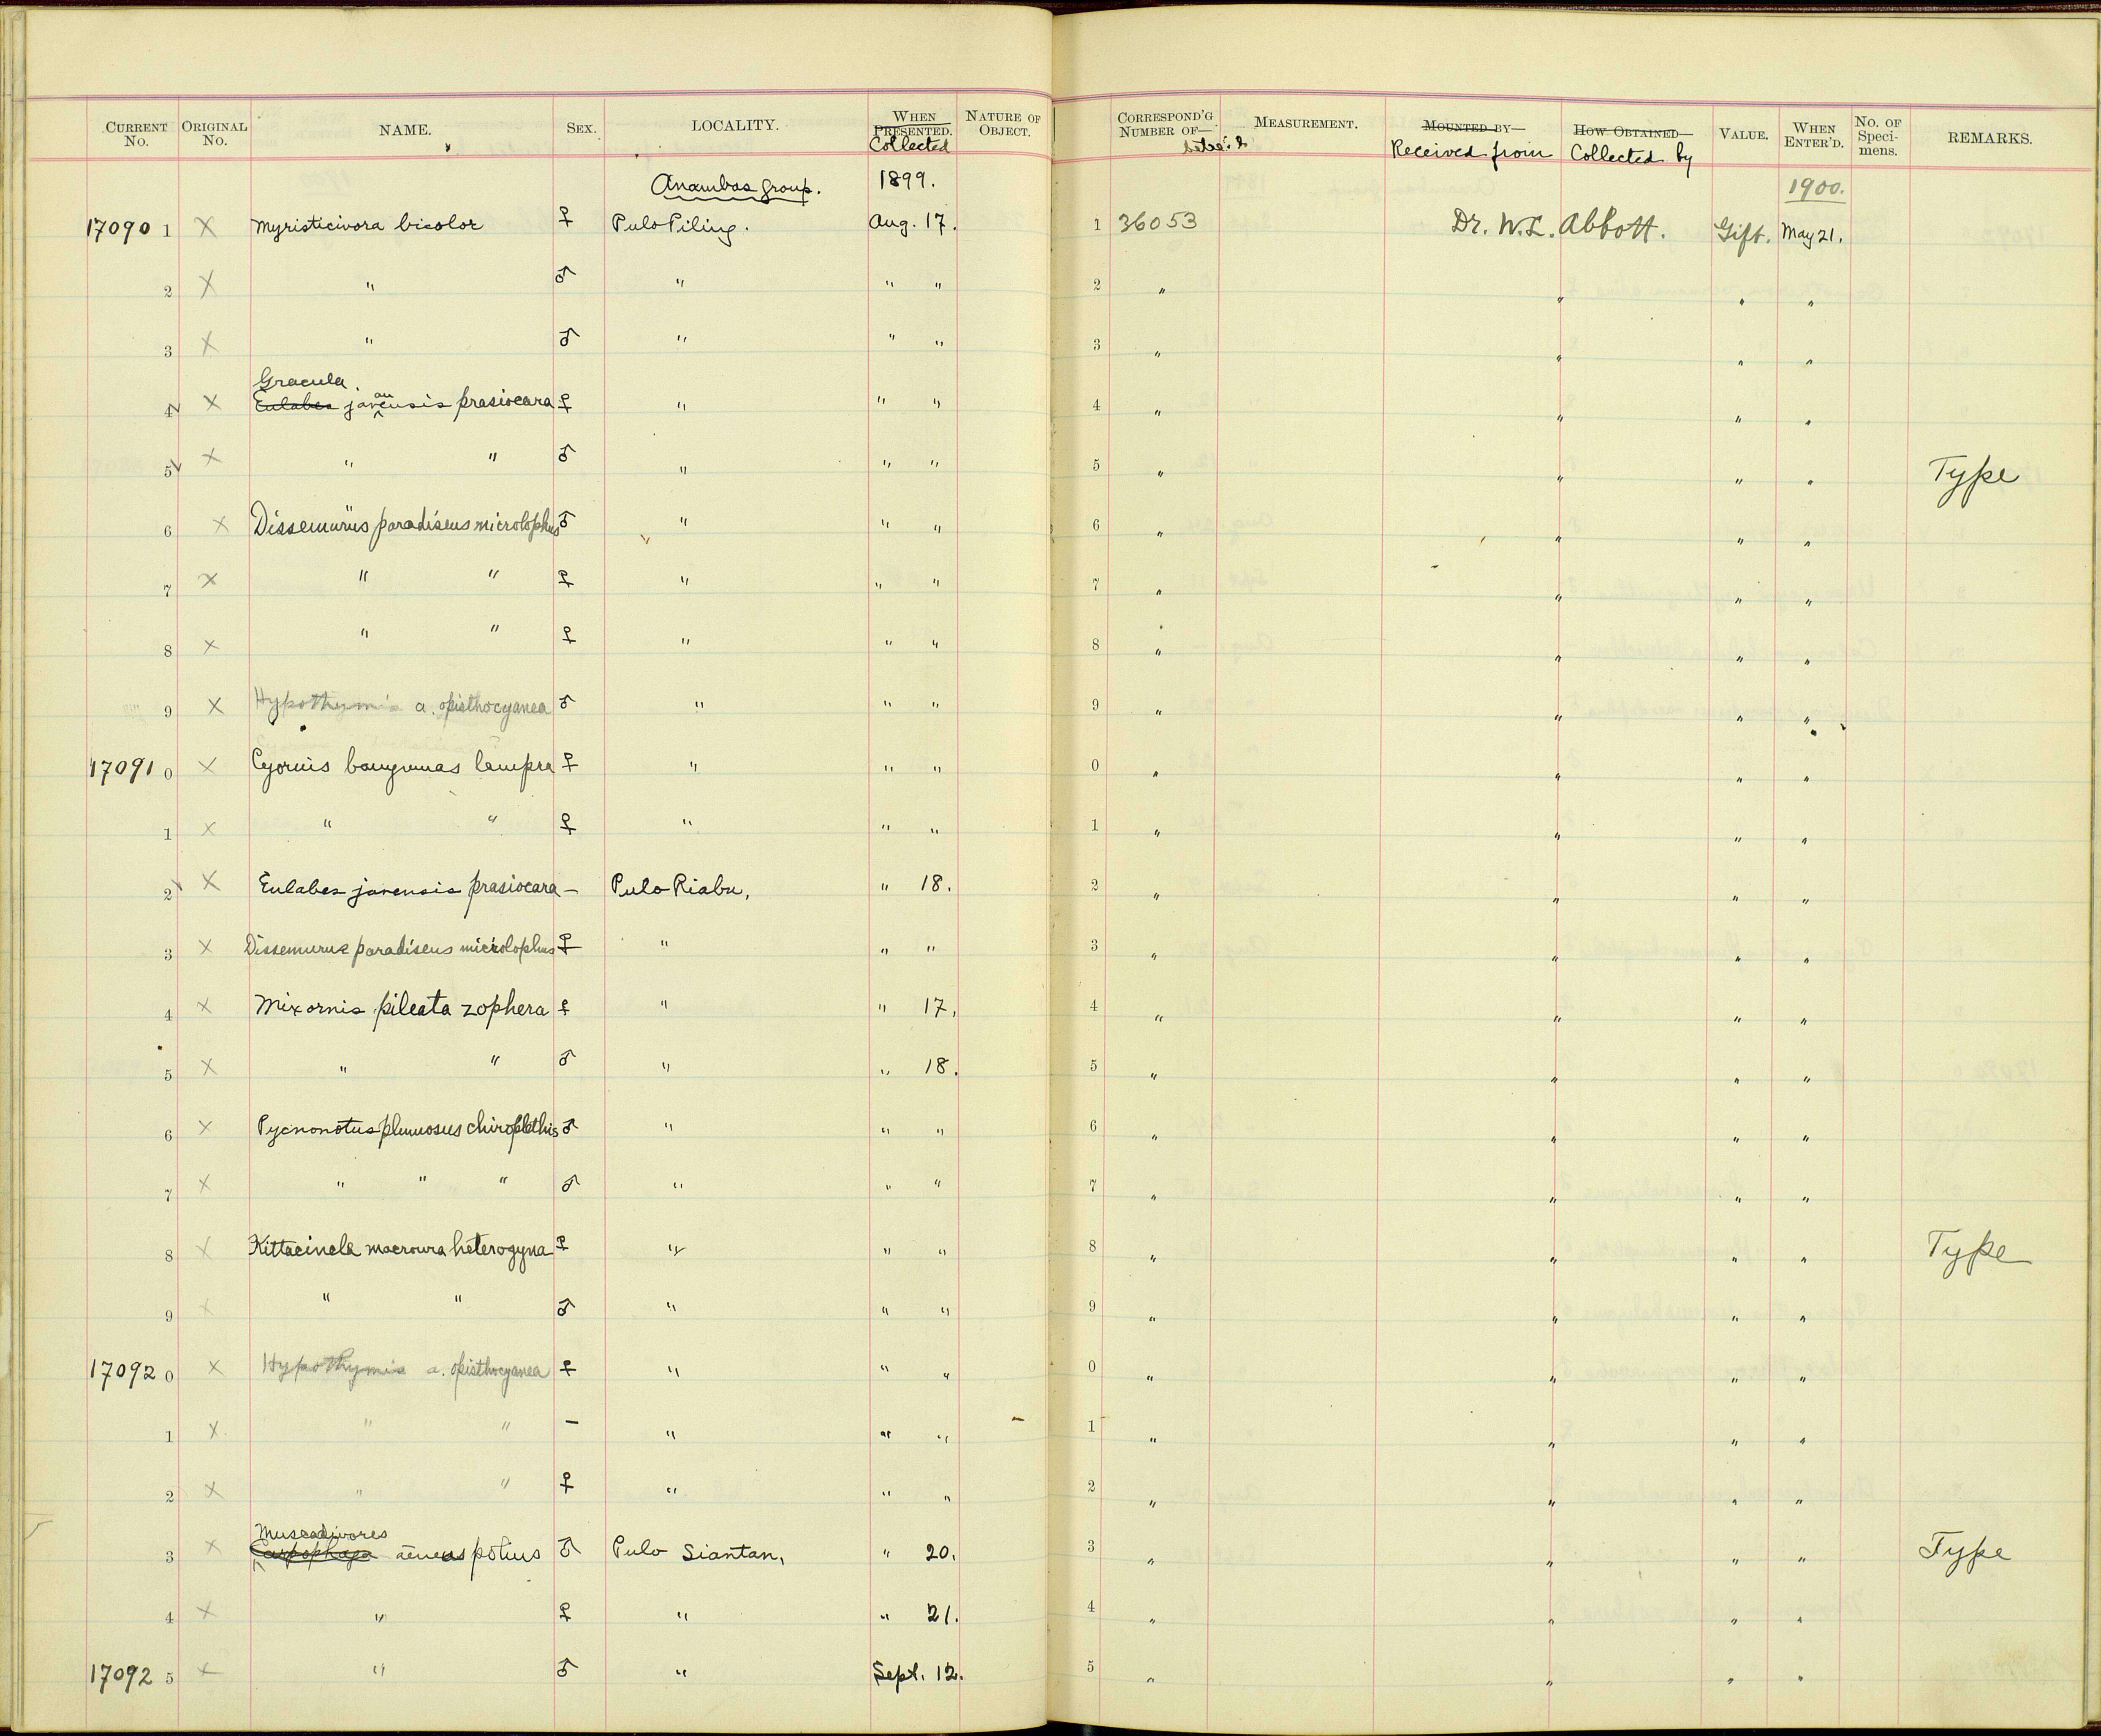 CURRENT No. ORIGINAL No. NAME. SEX. LOCALITY. WHEN PRESENTED. Collected NATURE OF OBJECT. CORRESPOND'G NUMBER OF— MEASUREMENT. MOUNTED BY— Received from HOW OBTAINED— Collected by VALUE. WHEN ENTER'D. No. OF Speci-mens. REMARKS.
Anambas group. 1899. 1900.
17090 1 X Myristicivora bicolor ♀ Pulo Piling. Aug. 17. 1 36053 Dr. W. L. Abbott. Gift. May 21.
2 X " ♂ " " " 2 " " " "
3 X " ♂ " " " 3 " " " "
Gracula
4 X Eulabes javanensis prasiocara ♀ " " " 4 " " " "
5 X " " ♂ " " " 5 " " " " Type
6 X Dissemurus paradiseus microlophus ♂ " " " 6 " " " "
7 X " " ♀ " " " 7 " " " "
8 X " " ♀ " " " 8 " " " "
9 X Hypothymis a. opisthocyanea ♂ " " " 9 " " " "
17091 0 X Cyornis banyumas lampra ♀ " " " 0 " " " "
1 X " " ♀ " " " 1 " " " "
2 X Eulabes javensis prasiocara – Pulo Riabu, " 18. 2 " " " "
3 X Dissemurus paradiseus microlophus ♀ " " " 3 " " " "
4 X Mixornis pileata zophera ♀ " " 17, 4 " " " "
5 X " " ♂ " " 18. 5 " " " "
6 X Pycnonotus plumosus chiroplethis ♂ " " " 6 " " " "
7 X " " " ♂ " " " 7 " " " "
8 X Kittacincla macroura heterogyna ♀ " " " 8 " " " " Type
9 X " " ♂ " " " 9 " " " "
17092 0 X Hypothymis a. opisthocyanea ♀ " " " 0 " " " "
1 X " " – " " " 1 " " " "
2 X " " ♀ " " " 2 " " " "
Muscadivores
3 X Carpophaga aeneas polius ♂ Pulo Siantan, " 20. 3 " " " " Type
4 X " ♀ " " 21. 4 " " " "
17092 5 X " ♂ " Sept. 12. 5 " " " "